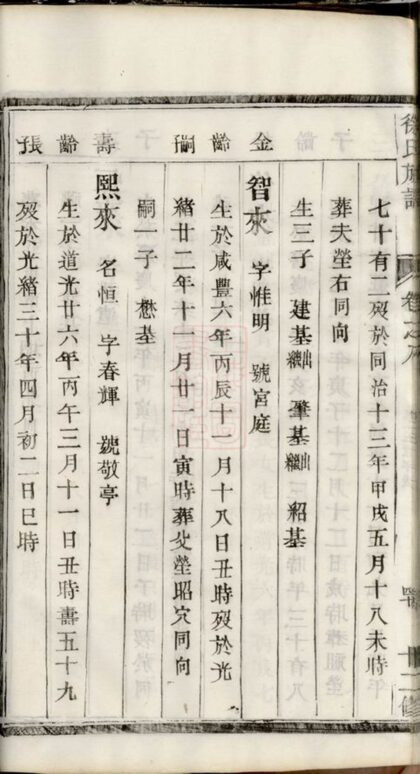 徐氏族譜 卷之九
七十有二歿於同治十三年甲戌五月十八未時
葬夫塋右同向
生三子 建基出繼 肇基出繼 紹基
金 智來 字惟明 號宮庭
齡 生於咸豐六年丙辰十一月十八日丑時歿於光
嗣 緒廿二年十一月廿一日寅時葬父塋昭穴同向
嗣一子 懋基
壽 熙來 名恒 字春輝 號敬亭
齡 生於道光廿六年丙午三月十一日丑時壽五十九
張 歿於光緒三十年四月初二日巳時